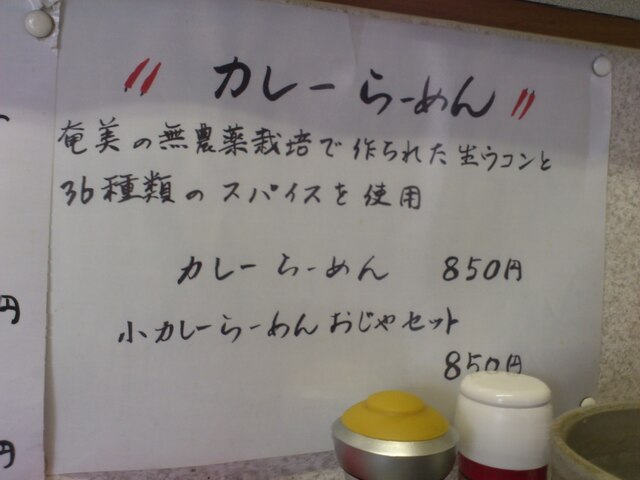 〃 カレーらーめん 〃
奄美の無農薬栽培で作られた生ウコンと
36種類のスパイスを使用
カレーらーめん 850円
小カレーらーめんおじやセット
850円
円
円